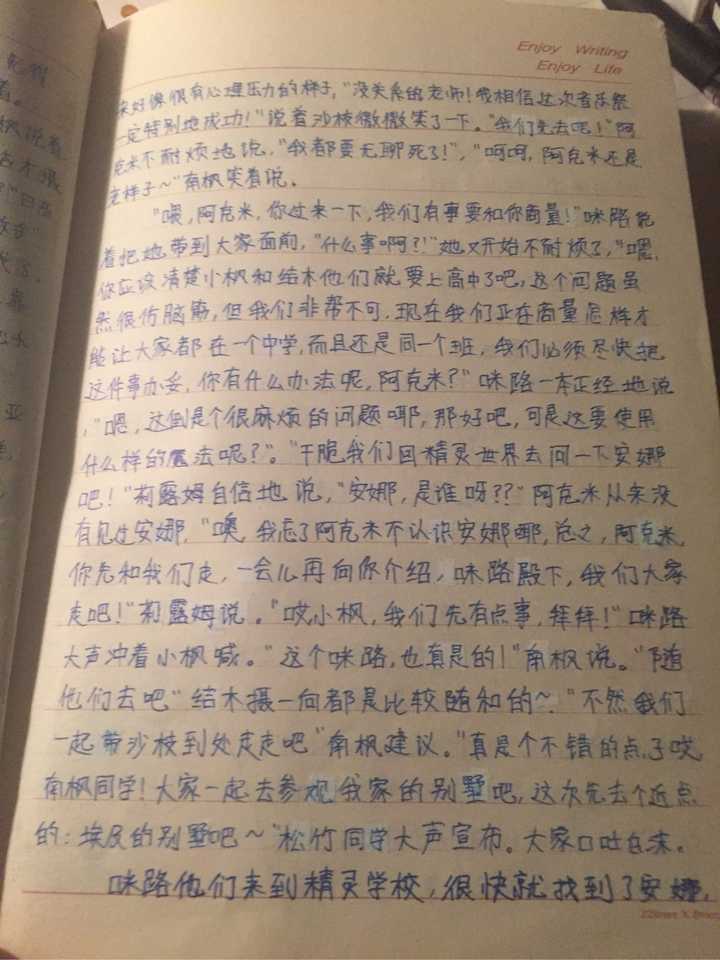 Enjoy Writing
Enjoy Life
来好像很有心理压力的样子,"没关系的老师!我相信这次音乐祭
一定特别地成功!"说着沙枝微微笑了一下。"我们先去吧!"阿
克米不耐烦地说,"我都要无聊死了!","呵呵,阿克米还是
老样子~"南枫笑着说。
"喂,阿克米,你过来一下,我们有事要和你商量!"咪路说
着把她带到大家面前,"什么事啊?!"她又开始不耐烦了,"嗯,
你应该清楚小枫和结木他们就要上高中了吧,这个问题虽
然很伤脑筋,但我们非帮不可,现在我们正在商量怎样才
能让大家都在一个中学,而且还是同一个班,我们必须尽快把
这件事办妥,你有什么办法呢,阿克米?"咪路一本正经地说
,"嗯,这倒是个很麻烦的问题耶,那好吧,可是这要使用
什么样的魔法呢?"。"干脆我们回精灵世界去问一下安娜
吧!"莉露姆自信地说,"安娜,是谁呀??"阿克米从来没
有见过安娜,"噢,我忘了阿克米不认识安娜耶,总之,阿克米,
你先和我们走,一会儿再向你介绍,咪路殿下,我们大家
走吧!"莉露姆说。"哎小枫,我们先有点事,拜拜!"咪路
大声冲着小枫喊。"这个咪路,也真是的!"南枫说。"随
他们去吧"结木摄一向都是比较随和的~"不然我们
一起带沙枝到处走走吧"南枫建议。"真是个不错的点子哎
南枫同学!大家一起去参观我家的别墅吧,这次先去个近点
的:埃及的别墅吧~"松竹同学大声宣布。大家口吐白沫。
咪路他们来到精灵学校,很快就找到了安娜,